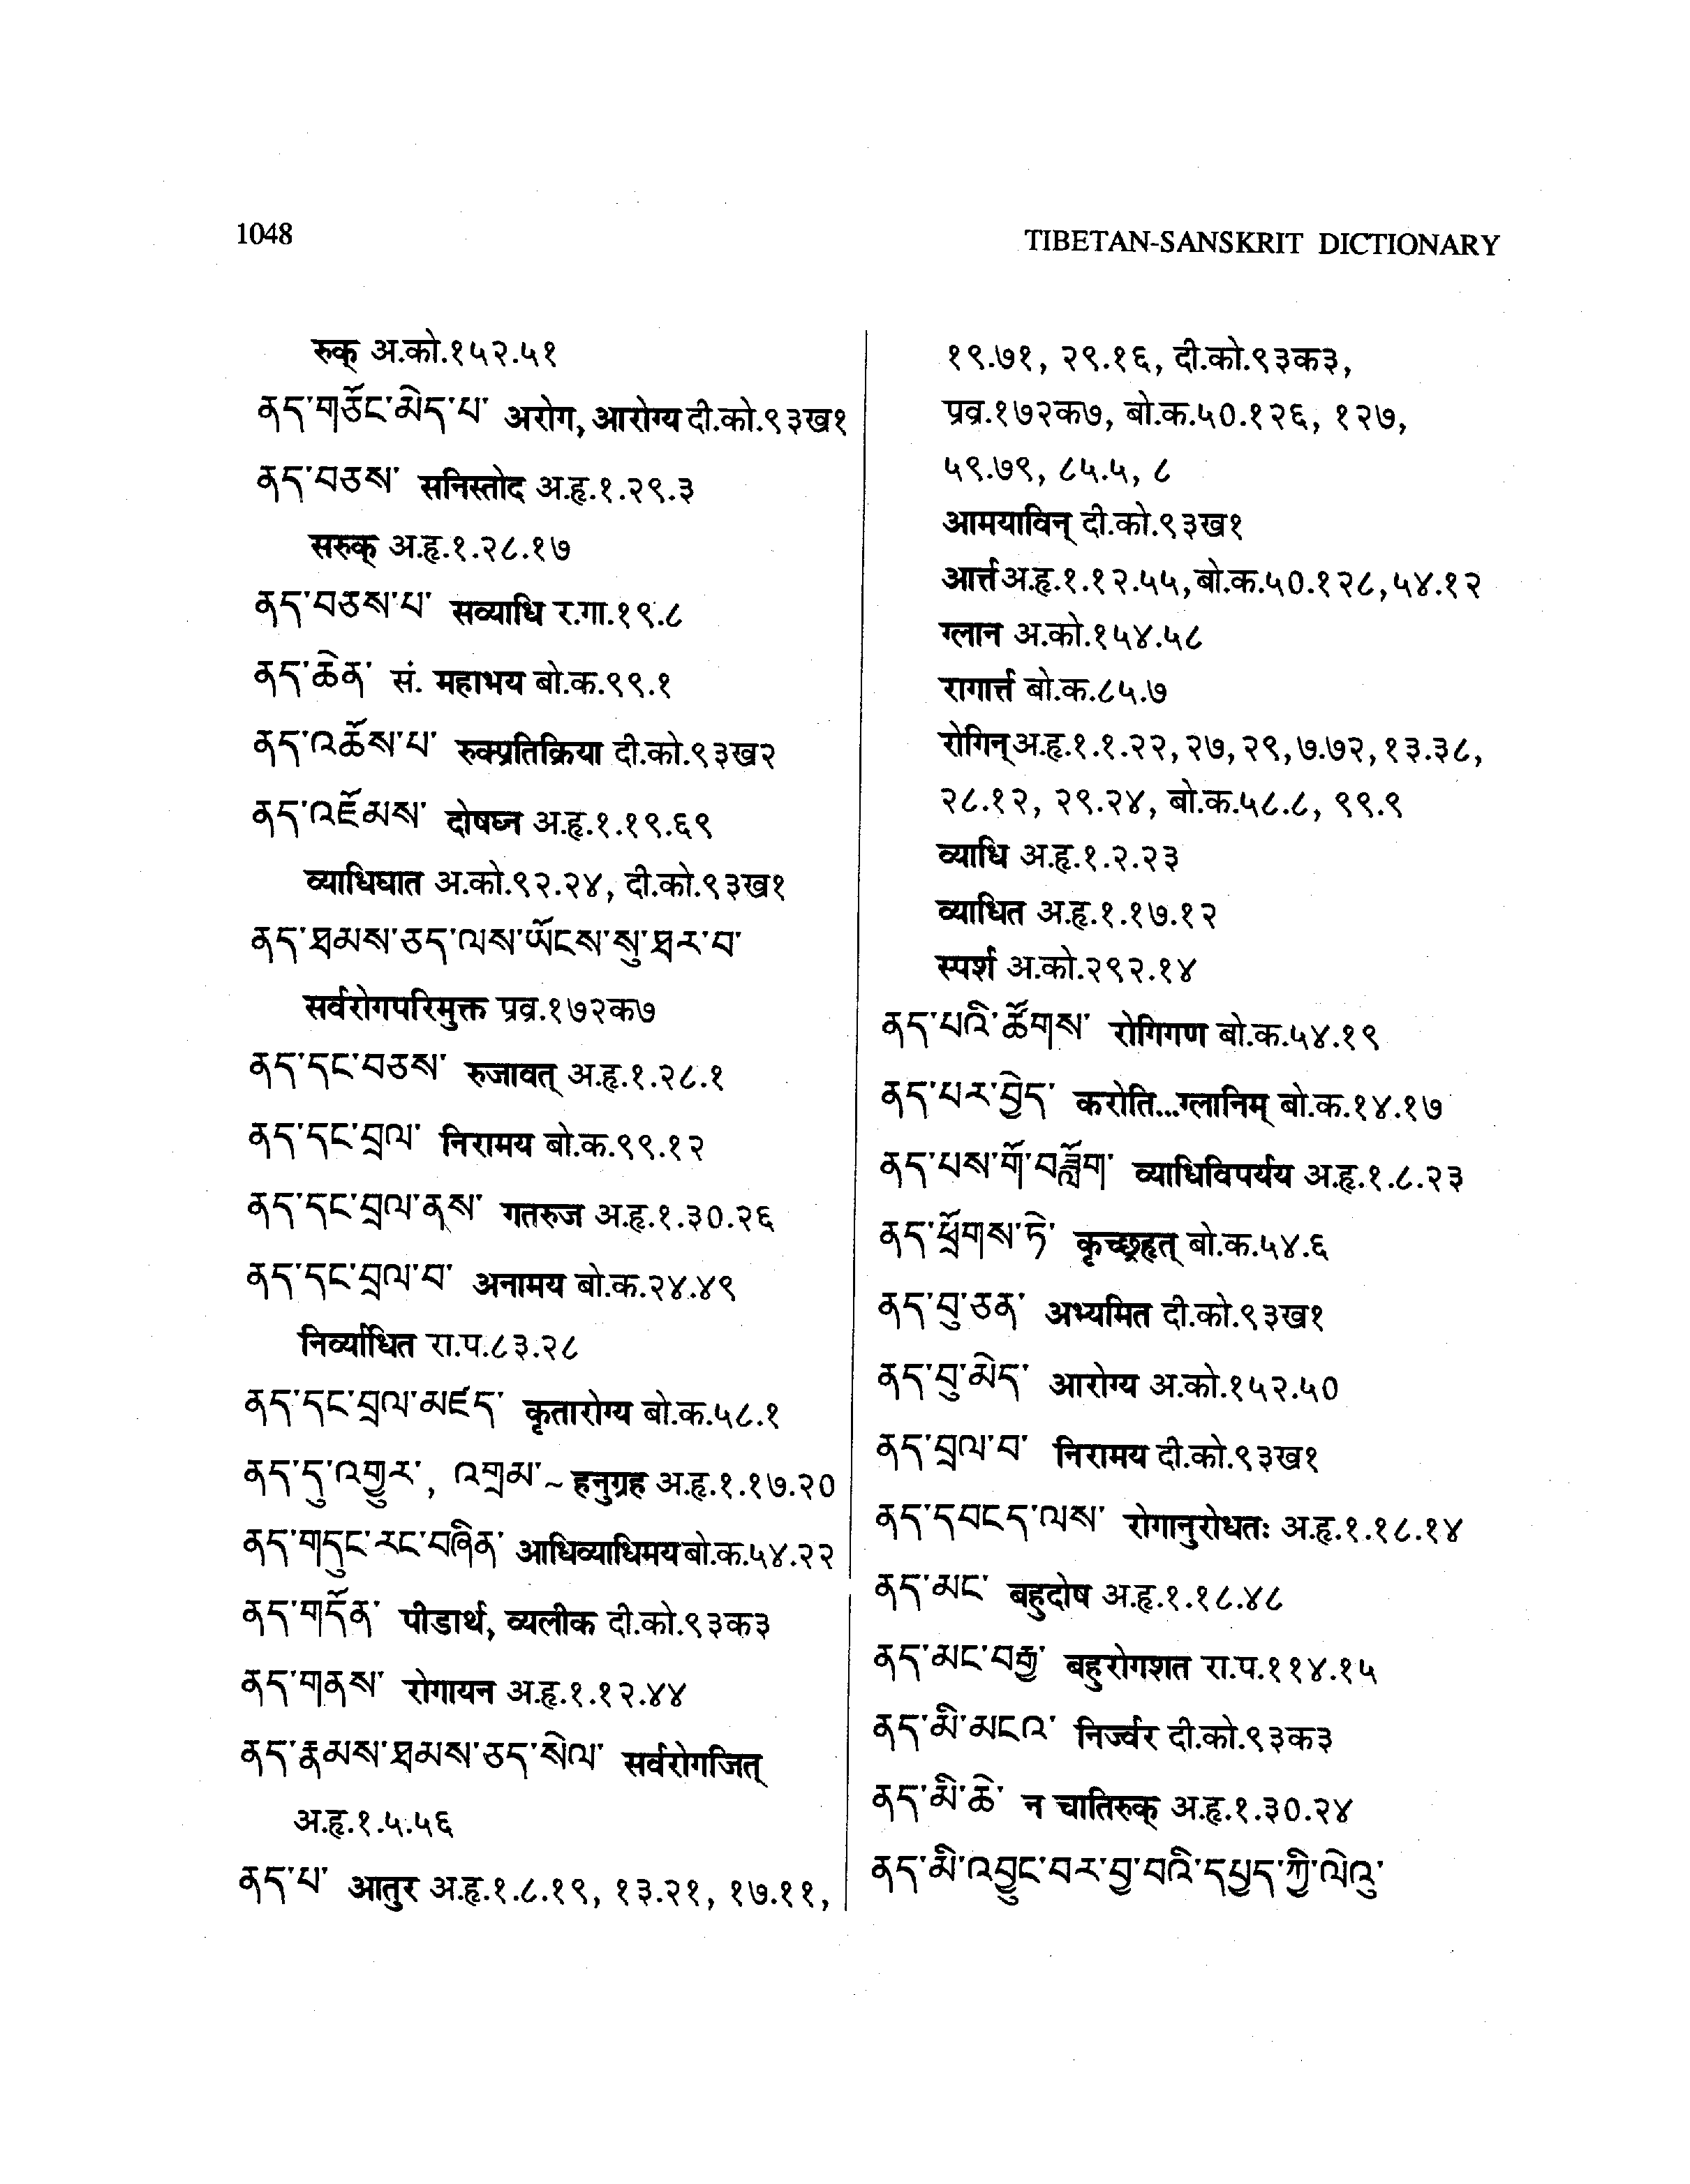 1048
TIBETAN-SANSKRIT DICTIONARY
रुक् अ.को.१५२.५१
ནད་གཅོང་མེད་པ་ अरोग, आरोग्य दी.को.९३ख१
ནད་བཅས་ सनिस्तोद अ.हृ.१.२९.३
सरुक् अ.हृ.१.२८.१७
ནད་བཅས་པ་ सव्याधि र.गा.१९.८
ནད་ཆེན་ सं. महाभय बो.क.९९.१
ནད་འཆོས་པ་ रुक्प्रतिक्रिया दी.को.९३ख२
ནད་འཇོམས་ दोषघ्न अ.हृ.१.१९.६९
व्याधिघात अ.को.९२.२४, दी.को.९३ख१
ནད་ཐམས་ཅད་ལས་ཡོངས་སུ་ཐར་བ་
सर्वरोगपरिमुक्त प्रव्र.१७२क७
ནད་དང་བཅས་ रुजावत् अ.हृ.१.२८.१
ནད་དང་བྲལ་ निरामय बो.क.९९.१२
ནད་དང་བྲལ་ནས་ गतरुज अ.हृ.१.३०.२६
ནད་དང་བྲལ་བ་ अनामय बो.क.२४.४९
निर्व्याधित रा.प.८३.२८
ནད་དང་བྲལ་མཛད་ कृतारोग्य बो.क.५८.१
ནད་དུ་འགྱུར་, འགྲམ་~ हनुग्रह अ.हृ.१.१७.२०
ནད་གདུང་རང་བཞིན་ आधिव्याधिमय बो.क.५४.२२
ནད་གདོན་ पीडार्थ, व्यलीक दी.को.९३क३
ནད་གནས་ रोगायन अ.हृ.१.१२.४४
ནད་རྣམས་ཐམས་ཅད་སེལ་ सर्वरोगजित्
अ.हृ.१.५.५६
ནད་པ་ आतुर अ.हृ.१.८.१९, १३.२१, १७.११,
१९.७१, २९.१६, दी.को.९३क३,
प्रव्र.१७२क७, बो.क.५०.१२६, १२७,
५९.७९, ८५.५, ८
आमयाविन् दी.को.९३ख१
आर्त्त अ.हृ.१.१२.५५, बो.क.५०.१२८, ५४.१२
ग्लान अ.को.१५४.५८
रागार्त्त बो.क.८५.७
रोगिन् अ.हृ.१.१.२२, २७, २९, ७.७२, १३.३८,
२८.१२, २९.२४, बो.क.५८.८, ९९.९
व्याधि अ.हृ.१.२.२३
व्याधित अ.हृ.१.१७.१२
स्पर्श अ.को.२९२.१४
ནད་པའི་ཚོགས་ रोगिगण बो.क.५४.१९
ནད་པར་བྱེད་ करोति...ग्लानिम् बो.क.१४.१७
ནད་པས་གོ་བཟློག་ व्याधिविपर्यय अ.हृ.१.८.२३
ནད་ཕྲོགས་ཏེ་ कृच्छ्रहृत् बो.क.५४.६
ནད་བུ་ཅན་ अभ्यमित दी.को.९३ख१
ནད་བུ་མེད་ आरोग्य अ.को.१५२.५०
ནད་བྲལ་བ་ निरामय दी.को.९३ख१
ནད་དབངད་ལས་ रोगानुरोधतः अ.हृ.१.१८.१४
ནད་མང་ बहुदोष अ.हृ.१.१८.४८
ནད་མང་བརྒྱ་ बहुरोगशत रा.प.११४.१५
ནད་མི་མངའ་ निर्ज्वर दी.को.९३क३
ནད་མི་ཆེ་ न चातिरुक् अ.हृ.१.३०.२४
ནད་མི་འབྱུང་བར་བྱ་བའི་དཔྱད་ཀྱི་ལེའུ་